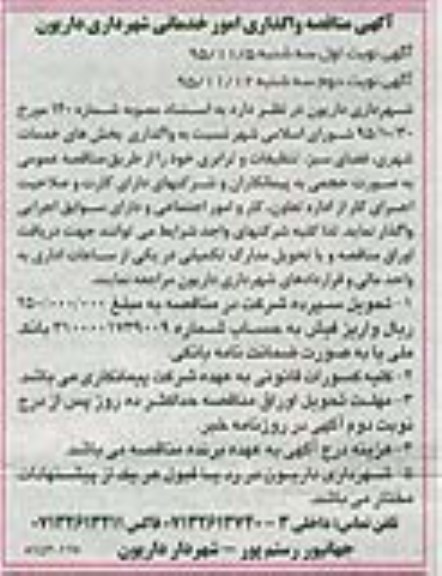 آگهی مناقصه واگذاری امور خدماتی شهرداری داریون
آگهی نوبت اول سه شنبه ۹۵/۱۱/۵
آگهی نوبت دوم سه شنبه ۹۵/۱۱/۱۲
شهرداری داریون در نظر دارد به استناد مصوبه شماره ۱۴۰ مورخ
شورای اسلامی شهر نسبت به واگذاری بخش های خدمات
شهری، فضای سبز، تنظیفات و ترابری خود را از طریق مناقصه عمومی
به صورت حجمی به پیمانکاران و شرکتهای دارای کارت و صلاحیت
اجرای کار از اداره تعاون، کار و امور اجتماعی و دارای سوابق اجرایی
واگذار نماید. لذا کلیه شرکتهای واجد شرایط می توانند جهت دریافت
اوراق مناقصه و یا تحویل مدارک تکمیلی در یکی از ساعات اداری به
واحد مالی و قراردادهای شهرداری داریون مراجعه نمایند.
۱- تحویل سپرده شرکت در مناقصه به مبلغ ۲۵۰/۰۰۰/۰۰۰
ریال و واریز فیش به حساب شماره ۳۱۰۰۰۰۱۷۳۹۰۰۹ بانک
ملی یا به صورت ضمانت نامه بانکی.
۲- کلیه کسورات قانونی به عهده شرکت پیمانکاری می باشد.
۳- مهلت تحویل اوراق مناقصه حداکثر ده روز پس از درج
نوبت دوم آگهی در روزنامه خبر.
۴- هزینه درج آگهی به عهده برنده مناقصه می باشد.
۵- شهرداری داریون در رد یا قبول هر یک از پیشنهادات
مختار می باشد.
تلفن تماس: داخلی ۳ - ۰۷۱۳۲۶۱۳۷۴۰ فاکس ۰۷۱۳۲۶۱۳۴۱۱
جهانپور رستم پور - شهردار داریون